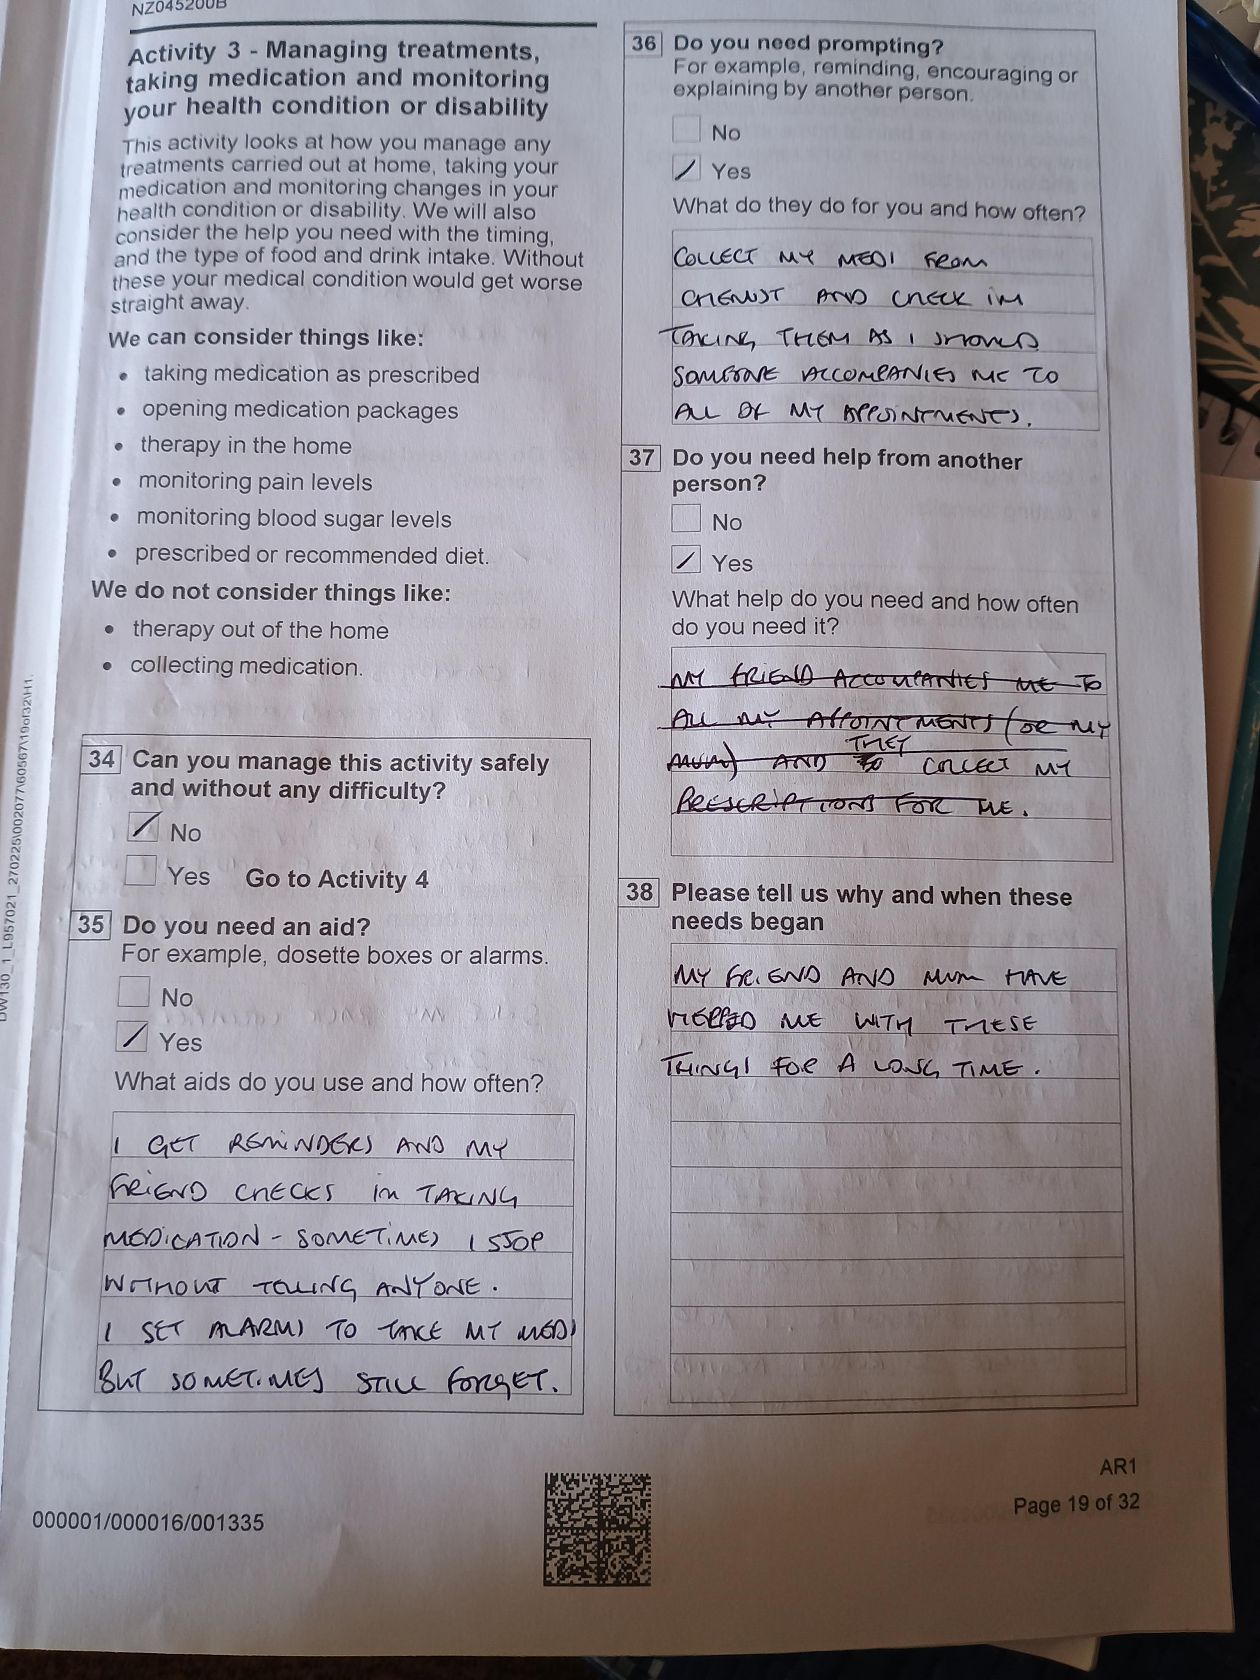 NZ045200B
Activity 3 - Managing treatments,
taking medication and monitoring
your health condition or disability
This activity looks at how you manage any
treatments carried out at home, taking your
medication and monitoring changes in your
health condition or disability. We will also
consider the help you need with the timing,
and the type of food and drink intake. Without
these your medical condition would get worse
straight away.
We can consider things like:
• taking medication as prescribed
• opening medication packages
• therapy in the home
• monitoring pain levels
• monitoring blood sugar levels
• prescribed or recommended diet.
We do not consider things like:
• therapy out of the home
• collecting medication.
34 Can you manage this activity safely
and without any difficulty?
No
Yes Go to Activity 4
35 Do you need an aid?
For example, dosette boxes or alarms.
No
Yes
What aids do you use and how often?
I GET REMINDERS AND MY
FRIEND CHECKS IM TAKING
MEDICATION - SOMETIMES I STOP
WITHOUT TELLING ANYONE.
I SET ALARMS TO TAKE MY MEDS
BUT SOMETIMES STILL FORGET.
36 Do you need prompting?
For example, reminding, encouraging or
explaining by another person.
No
Yes
What do they do for you and how often?
COLLECT MY MEDS FROM
CHEMIST AND CHECK IM
TAKING THEM AS I SHOULD
SOMEONE ACCOMPANIES ME TO
ALL OF MY APPOINTMENTS.
37 Do you need help from another
person?
No
Yes
What help do you need and how often
do you need it?
MY FRIEND ACCOMPANIES ME TO
ALL MY APPOINTMENTS (OR MY
THEY
MUM) AND COLLECT MY
PRESCRIPTIONS FOR ME.
38 Please tell us why and when these
needs began
MY FRIEND AND MUM HAVE
HELPED ME WITH THESE
THINGS FOR A LONG TIME.
AR1
Page 19 of 32
000001/000016/001335
DW130_1_L957021_270225\002077\60567\19of32\H1.